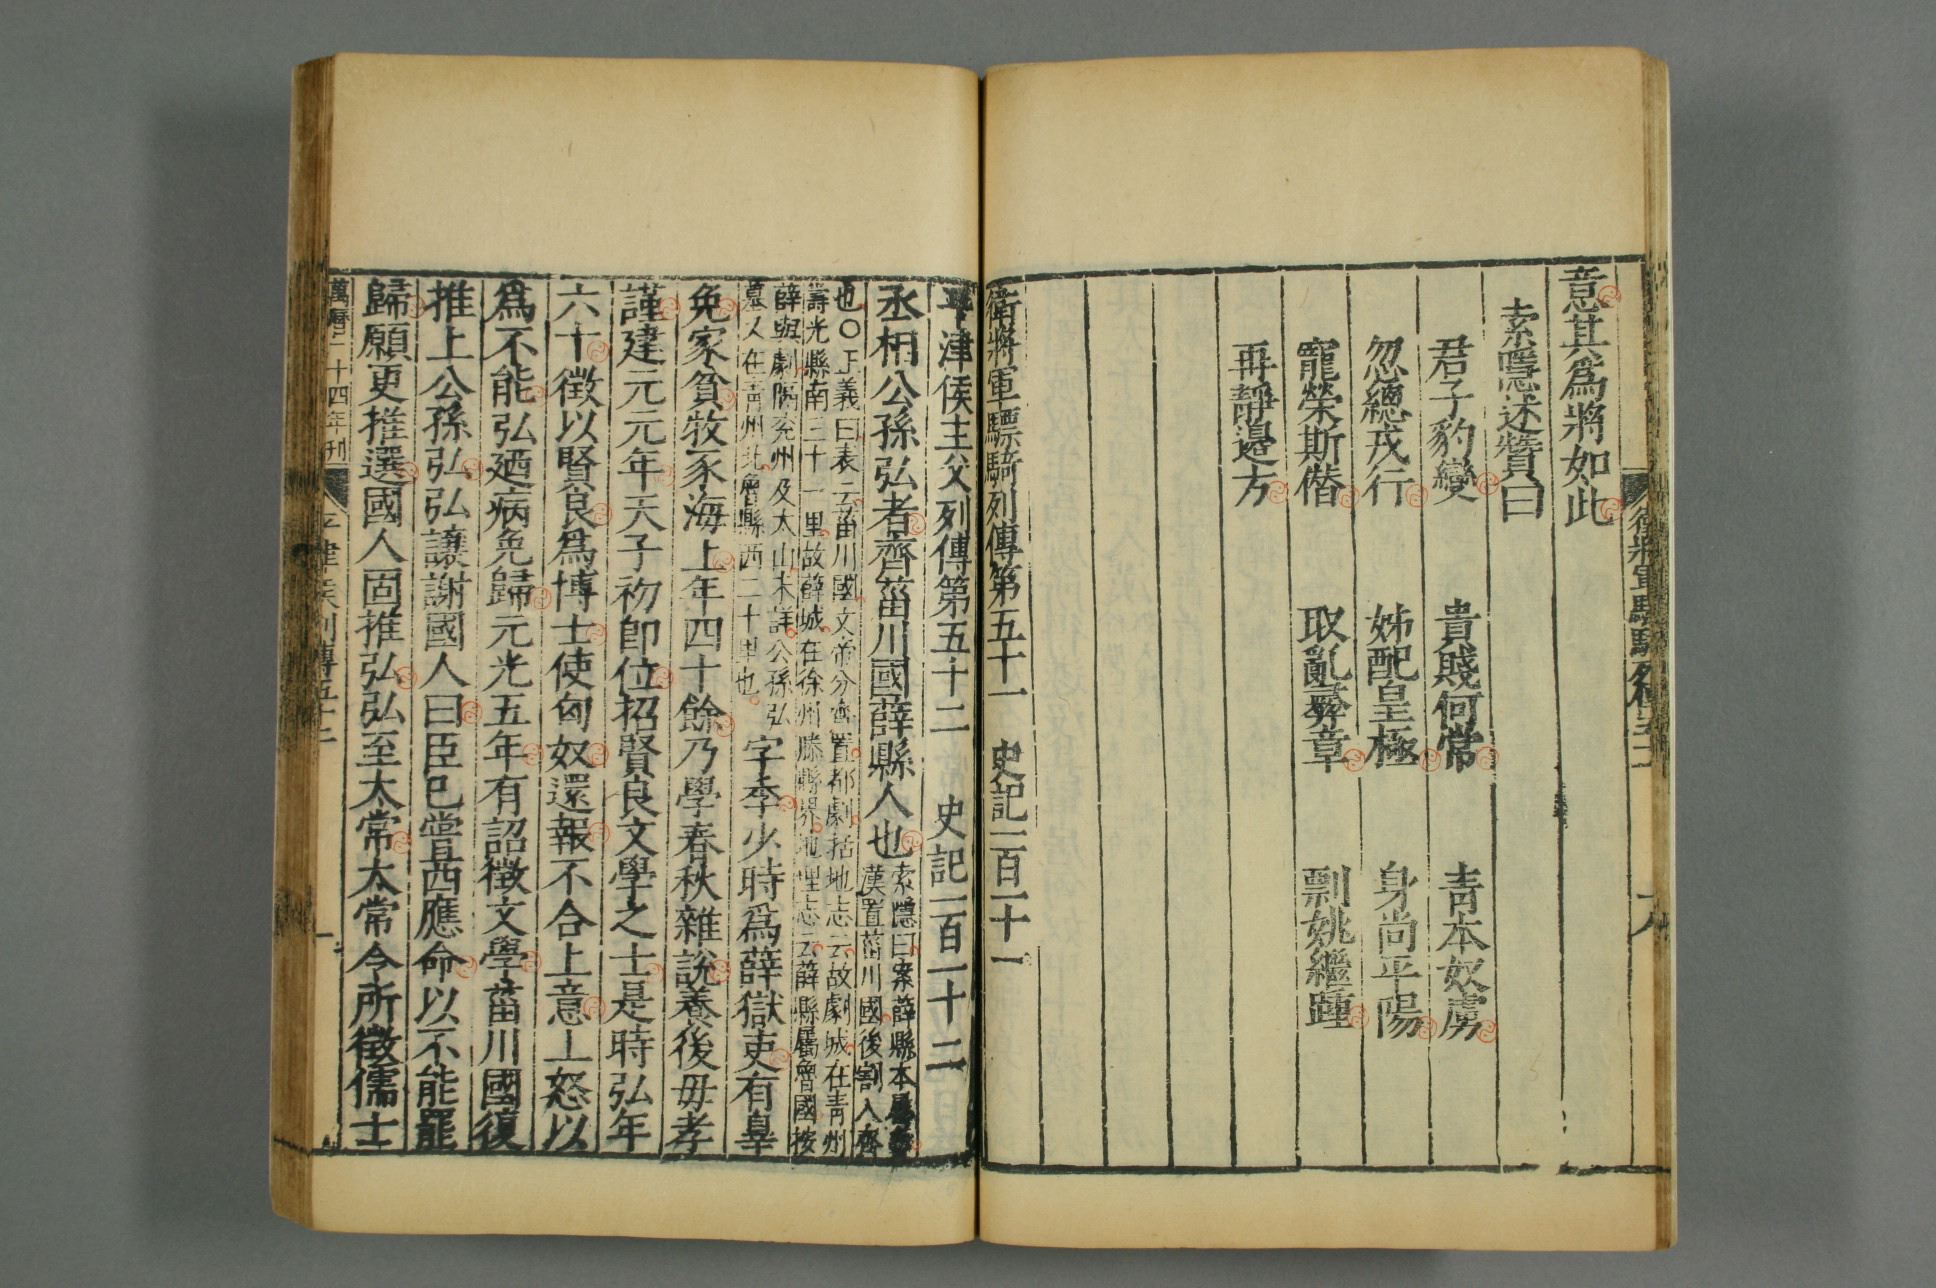 意其爲將如此
索隱述贊曰
君子豹變 貴賤何常 青本奴虜
忽總戎行 姊配皇極 身尚平陽
寵榮斯僭 取亂彝章 剽姚繼踵
再靜邊方
衛將軍驃騎列傳第五十一 史記一百一十一
平津侯主父列傳第五十二 史記一百一十二
丞相公孫弘者齊菑川國薛縣人也
索隱曰案薛縣本屬魯
漢置菑川國後割入齊
也〇正義曰表云菑川國文帝分齊置都劇括地志云故劇城在青州
壽光縣南三十一里故薛城在徐州滕縣界地理志云薛縣屬魯國按
薛與劇隔兖州及太山未詳公孫弘
墓又在青州北魯縣西二十里也
字季少時爲薛獄吏有辠
免家貧牧豕海上年四十餘乃學春秋雜說養後母孝
謹建元元年天子初卽位招賢良文學之士是時弘年
六十徵以賢良爲博士使匈奴還報不合上意上怒以
爲不能弘廼病免歸元光五年有詔徵文學菑川國復
推上公孫弘弘讓謝國人曰臣已嘗西應命以不能罷
歸願更推選國人固推弘弘至太常太常令所徵儒士
萬曆二十四年刊
平津侯列傳五十二
一